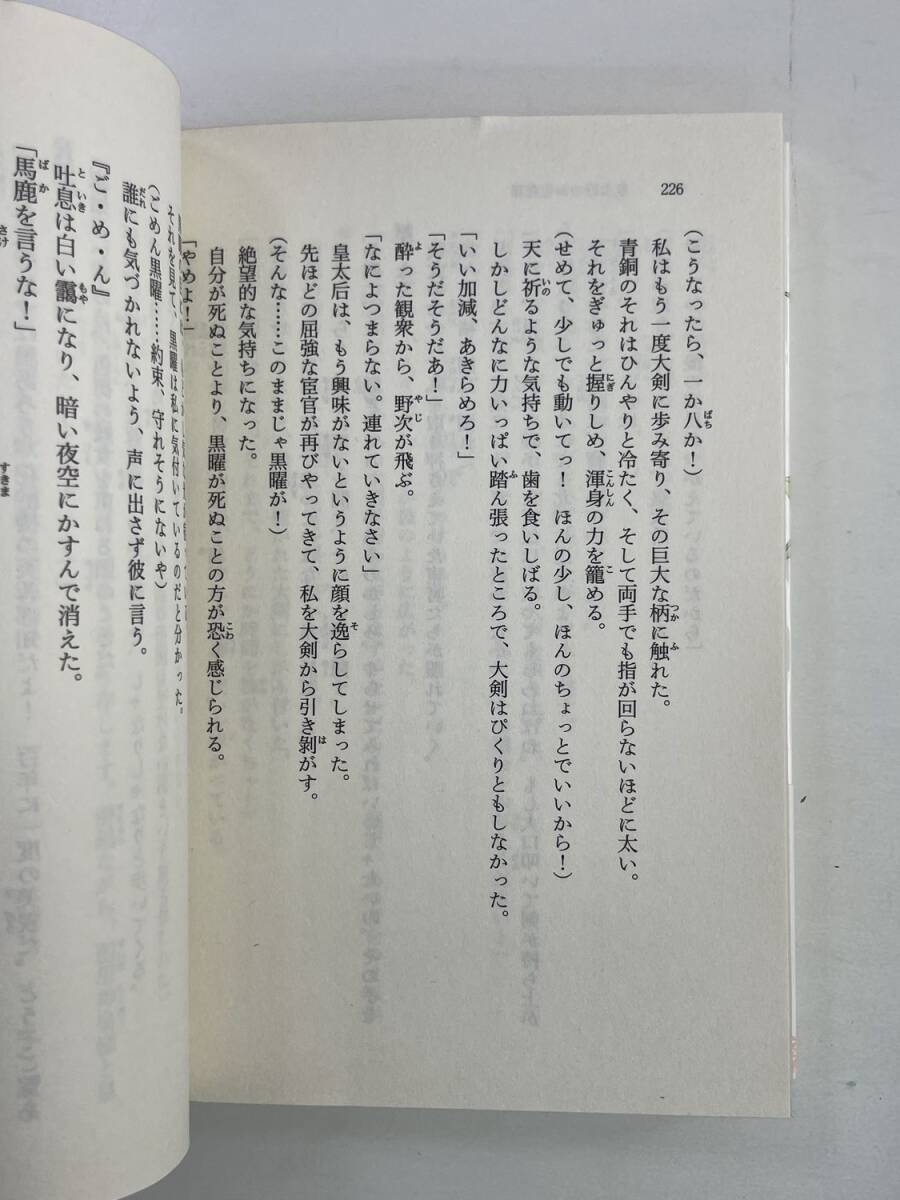 226
(こうなったら、一か八か!)
私はもう一度大剣に歩み寄り、その巨大な柄に触れた。
青銅のそれはひんやりと冷たく、そして両手でも指が回らないほどに太い。
それをぎゅっと握りしめ、渾身の力を籠める。
(せめて、少しでも動いてっ! ほんの少し、ほんのちょっとでいいから!)
天に祈るような気持ちで、歯を食いしばる。
しかしどんなに力いっぱい踏ん張ったところで、大剣はぴくりともしなかった。
「いい加減、あきらめろ!」
「そうだそうだあ!」
酔った観衆から、野次が飛ぶ。
「なによつまらない。連れていきなさい」
皇太后は、もう興味がないというように顔を逸らしてしまった。
先ほどの屈強な宦官が再びやってきて、私を大剣から引き剝がす。
(そんな……このままじゃ黒曜が!)
絶望的な気持ちになった。
自分が死ぬことより、黒曜が死ぬことの方が恐く感じられる。
「やめよ!」
それを見て、黒曜は私に気付いているのだと分かった。
(ごめん黒曜……約束、守れそうにないや)
誰にも気づかれないよう、声に出さず彼に言う。
『ご・め・ん』
吐息は白い靄になり、暗い夜空にかすんで消えた。
「馬鹿を言うな!」